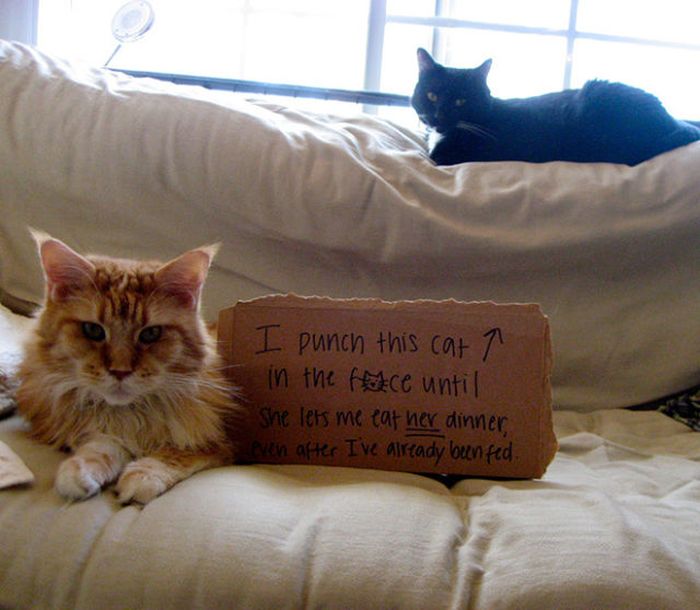 I punch this cat ↗
in the face until
She lets me eat her dinner,
even after I've already been fed.